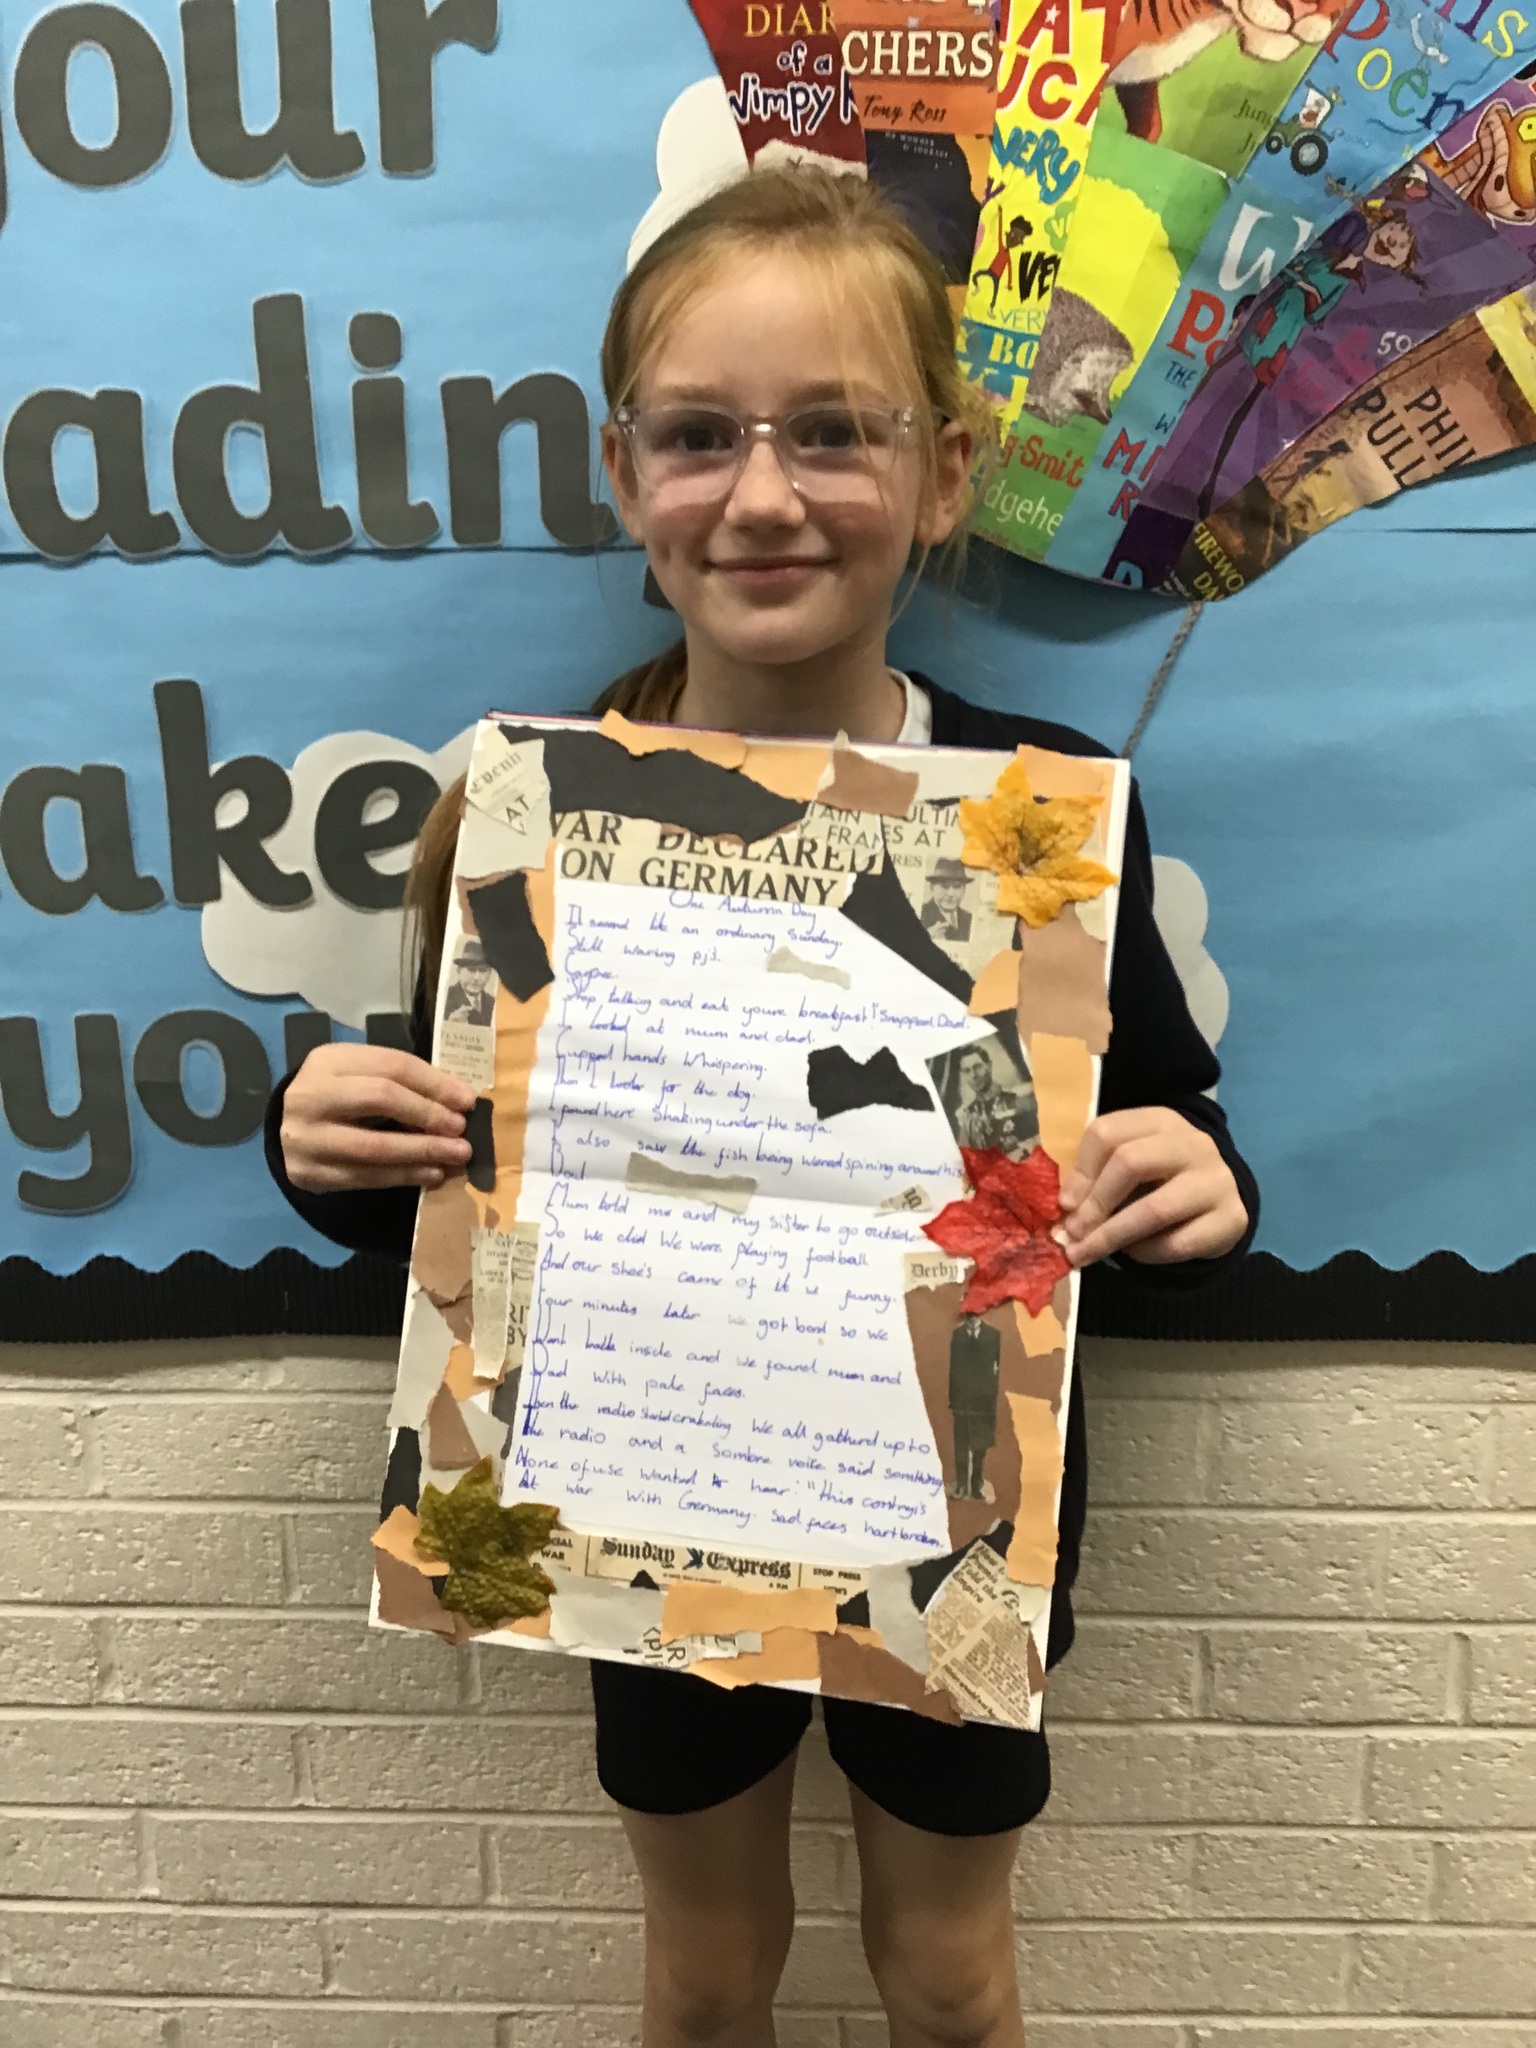 your
ading
ake
you
DIAR
of a
Wimpy K
CHERS
Tony Ross
VERY
VERY
BO
g-Smit
dgehe
W
P
THE
MI
R
Poem
50
PHIL
PULL
FIREWO
DA
AT
WAR DECLARED
ON GERMANY
TAIN
ULTIM
Y, FRAN
ES AT
RES
One Autumn Day
It seemed like an ordinary Sunday.
Still waring pj's.
Stop talking and eat youre breakfast!" Snapped Dad.
I looked at mum and dad.
Cupped hands Whispering.
then I look for the dog.
I found here Shaking under the sofa.
I also saw the fish being weread spining around his
Boul
Mum told me and my sister to go outside
So we did We were playing football.
And our shoe's came of it w funny.
Four minutes later we got bord so we
Want back inside and we found mum and
Dad with pale faces.
then the radio started crakeling We all gatherd up to
the radio and a Sombre voice said somthing
None of use wanted to hear: "this contry is
At war with Germany. Sad faces hartbroken.
Derby
Sunday Express
STOP PRESS
NEWS
WAR